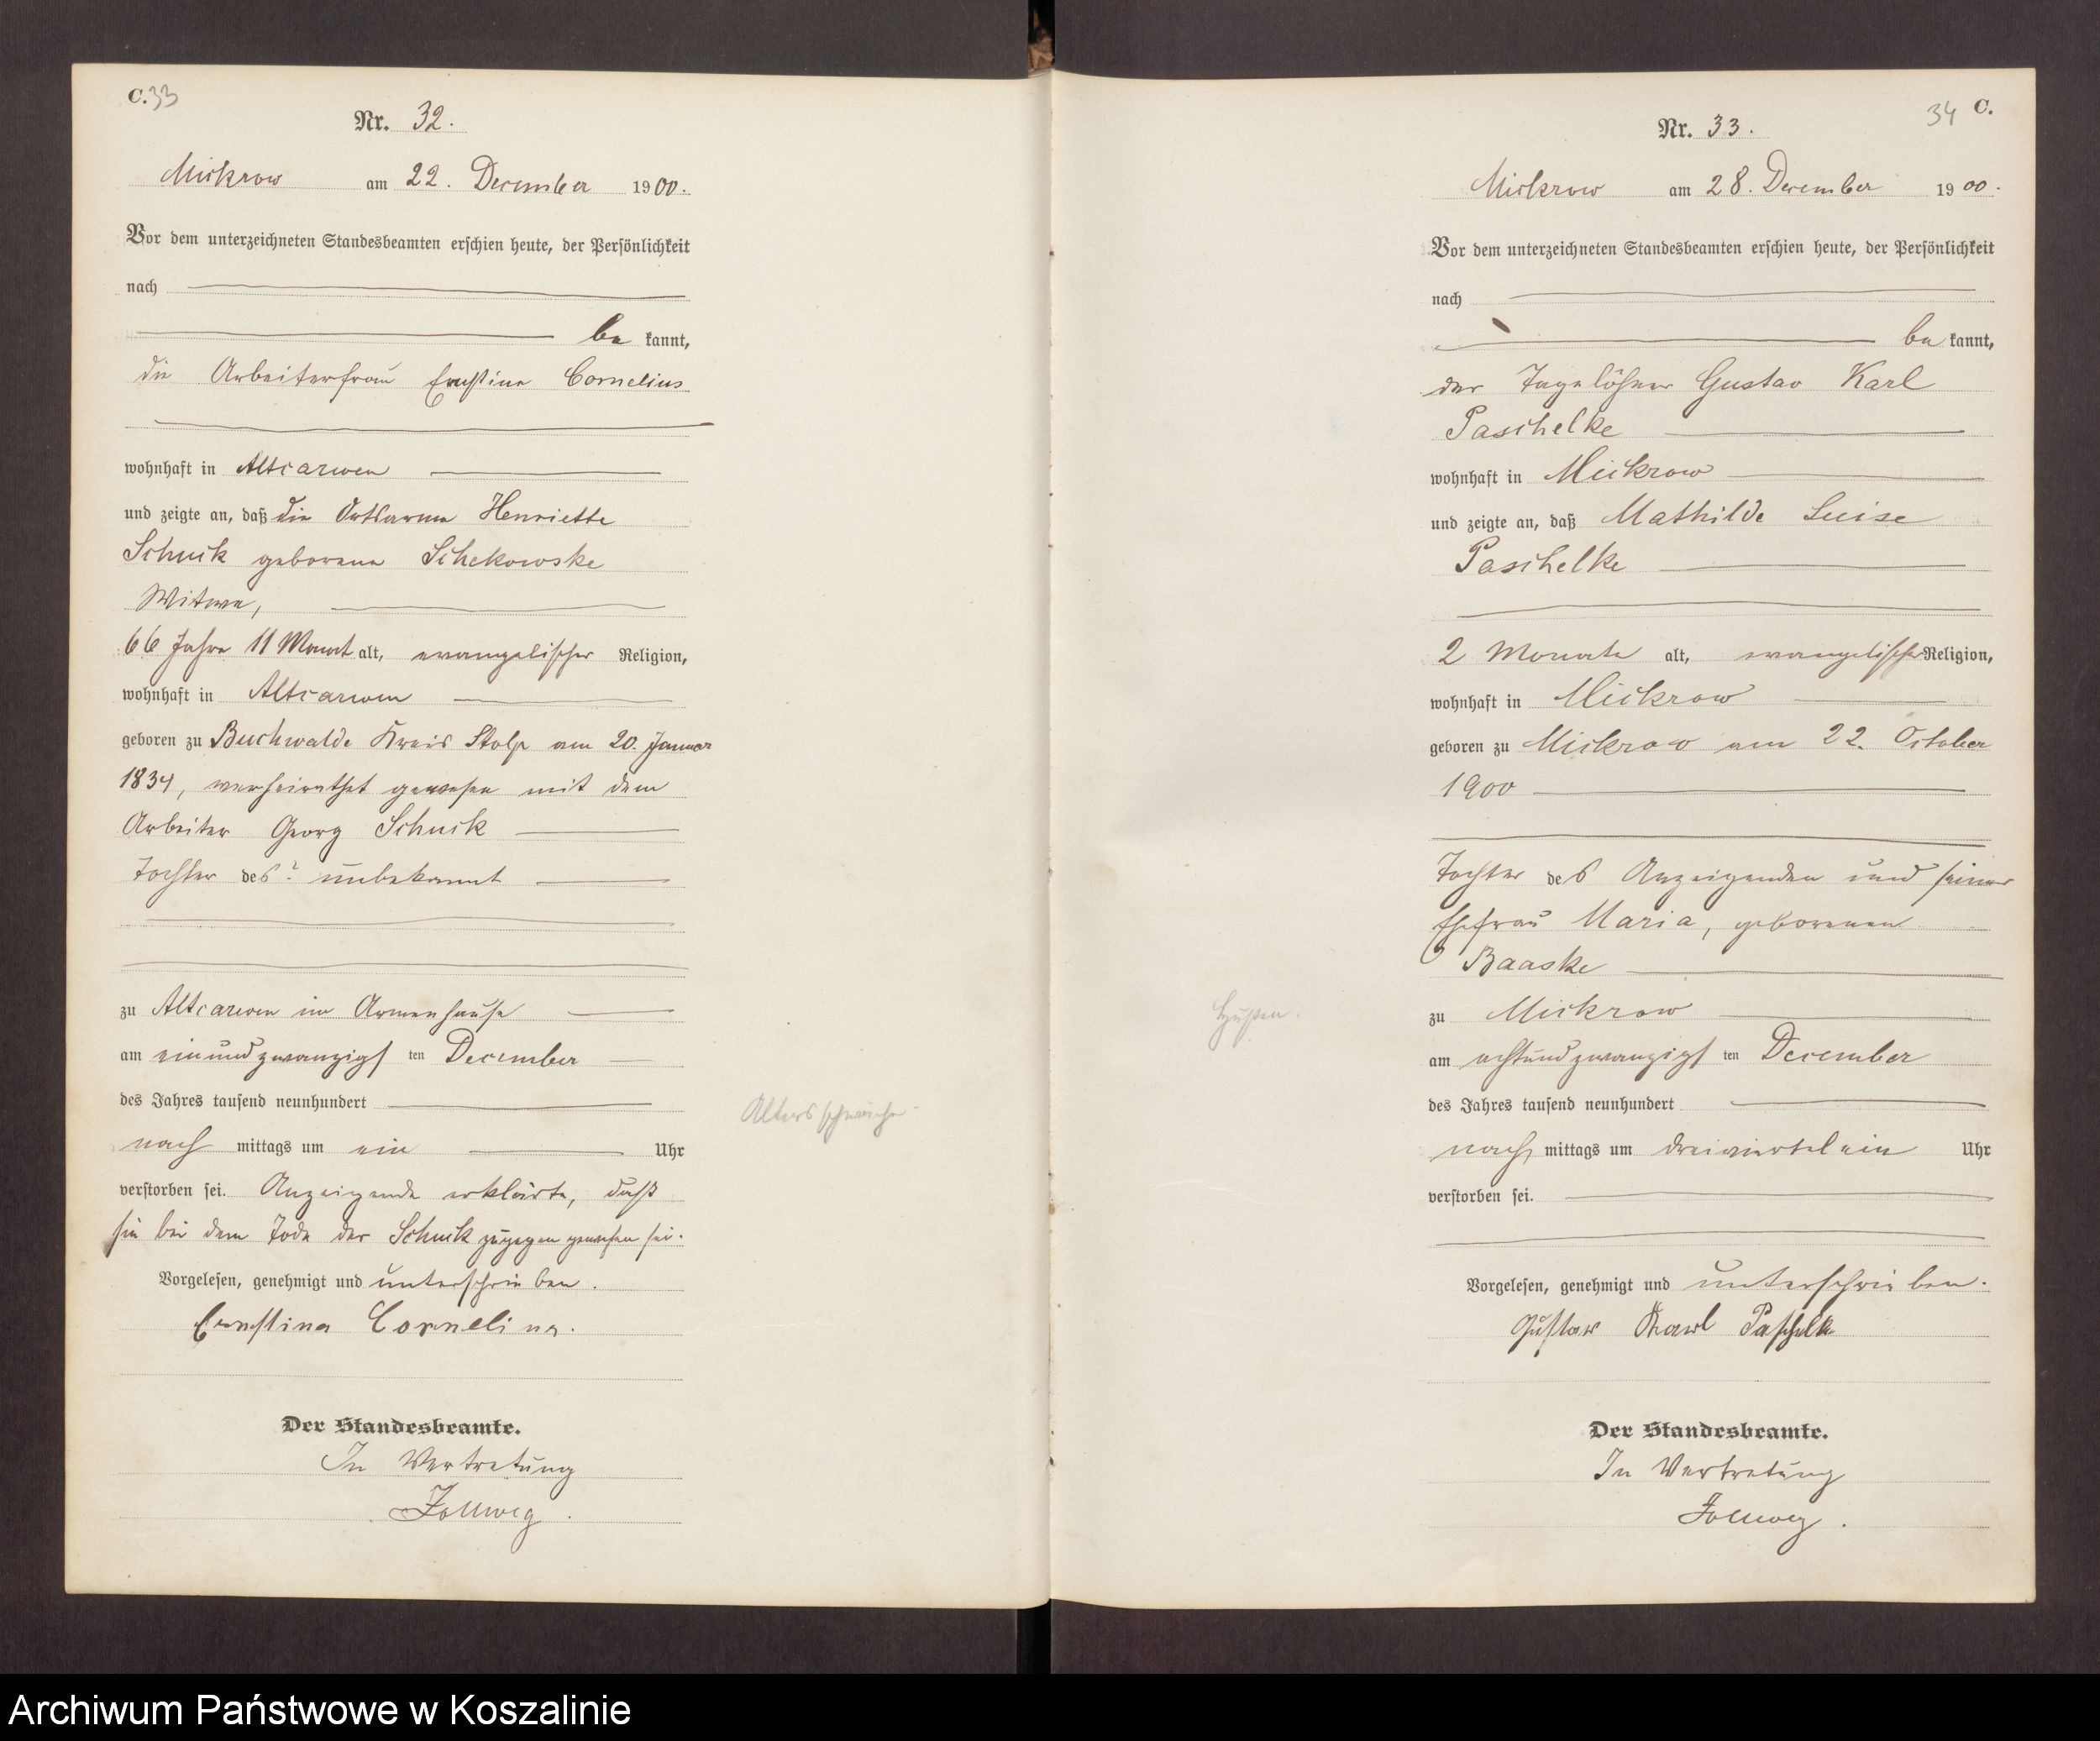 C. 33
Nr. 32.
Mickrow am 22. December 1900.
Vor dem unterzeichneten Standesbeamten erschien heute, der Persönlichkeit
nach
be kannt,
die Arbeiterfrau Ernstine Cornelius
wohnhaft in Altcarwen
und zeigte an, daß die Ortsarme Henriette
Schuik geborene Schekowske
Witwe,
66 Jahre 11 Monat alt, evangelischer Religion,
wohnhaft in Altcarwen
geboren zu Buchwalde Kreis Stolp am 20. Januar
1834, verheirathet gewesen mit dem
Arbeiter Georg Schuik
Tochter des? unbekannt
zu Altcarwen im Armenhause
am einundzwanzigsten December
des Jahres tausend neunhundert
nach mittags um ein Uhr
verstorben sei. Anzeigende erklärte, daß
sie bei dem Tode der Schuik zugegen gewesen sei.
Vorgelesen, genehmigt und unterschrieben.
Ernstine Cornelius.
Der Standesbeamte.
In Vertretung
Zollweg.
Altersschwäche
34 C.
Nr. 33.
Mickrow am 28. December 1900.
Vor dem unterzeichneten Standesbeamten erschien heute, der Persönlichkeit
nach
be kannt,
der Tagelöhner Gustav Karl
Paschelke
wohnhaft in Mickrow
und zeigte an, daß Mathilde Luise
Paschelke
2 Monate alt, evangelischer Religion,
wohnhaft in Mickrow
geboren zu Mickrow am 22. October
1900
Tochter des Anzeigenden und seiner
Ehefrau Maria, geborenen
Baaske
zu Mickrow
am achtundzwanzigsten December
des Jahres tausend neunhundert
nach mittags um dreiviertel ein Uhr
verstorben sei.
Vorgelesen, genehmigt und unterschrieben.
Gustav Karl Paschelke
Der Standesbeamte.
In Vertretung
Zollweg.
Husten.
Archiwum Państwowe w Koszalinie